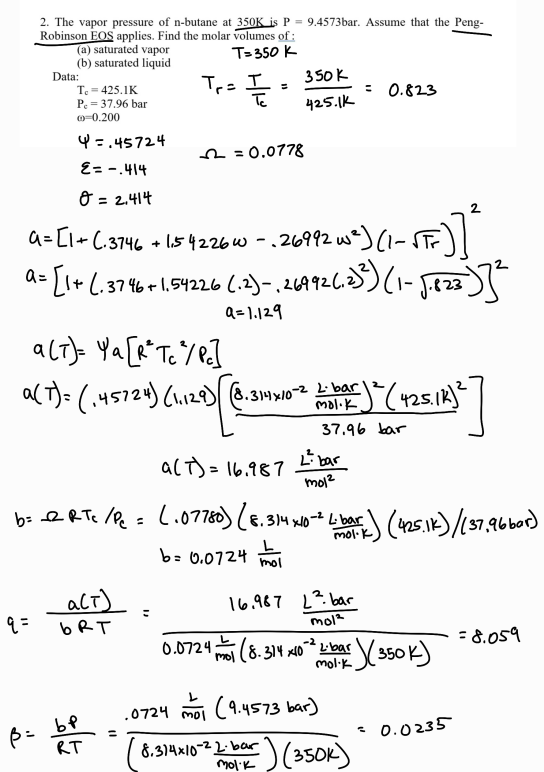 2. The vapor pressure of n-butane at 350K is P = 9.4573bar. Assume that the Peng-
Robinson EOS applies. Find the molar volumes of :
(a) saturated vapor
(b) saturated liquid
T=350 K
Data:
Tc = 425.1K
Pc = 37.96 bar
ω=0.200
Tr = T/Tc = 350K/425.1K = 0.823
Ψ = .45724
Ω = 0.0778
ε = -.414
σ = 2.414
a=[1+(.3746 + 1.54226ω - .26992ω²)(1-√Tr)]²
a=[1+(.3746+1.54226(.2)-.26992(.2)²)(1-√.823)]²
a=1.129
a(T)= Ψa[R²Tc²/Pc]
a(T)=(.45724)(1.129)[(8.314x10⁻² L·bar/mol·K)²(425.1K)²/37.96 bar]
a(T)=16.987 L²·bar/mol²
b= ΩRTc/Pc = (.07780)(8.314x10⁻² L·bar/mol·K)(425.1K)/(37.96bar)
b= 0.0724 L/mol
q= a(T)/bRT = 16.987 L²·bar/mol² / 0.0724 L/mol (8.314x10⁻² L·bar/mol·K)(350K) = 8.059
β= bP/RT = .0724 L/mol (9.4573 bar)/(8.314x10⁻² L·bar/mol·K)(350K) = 0.0235